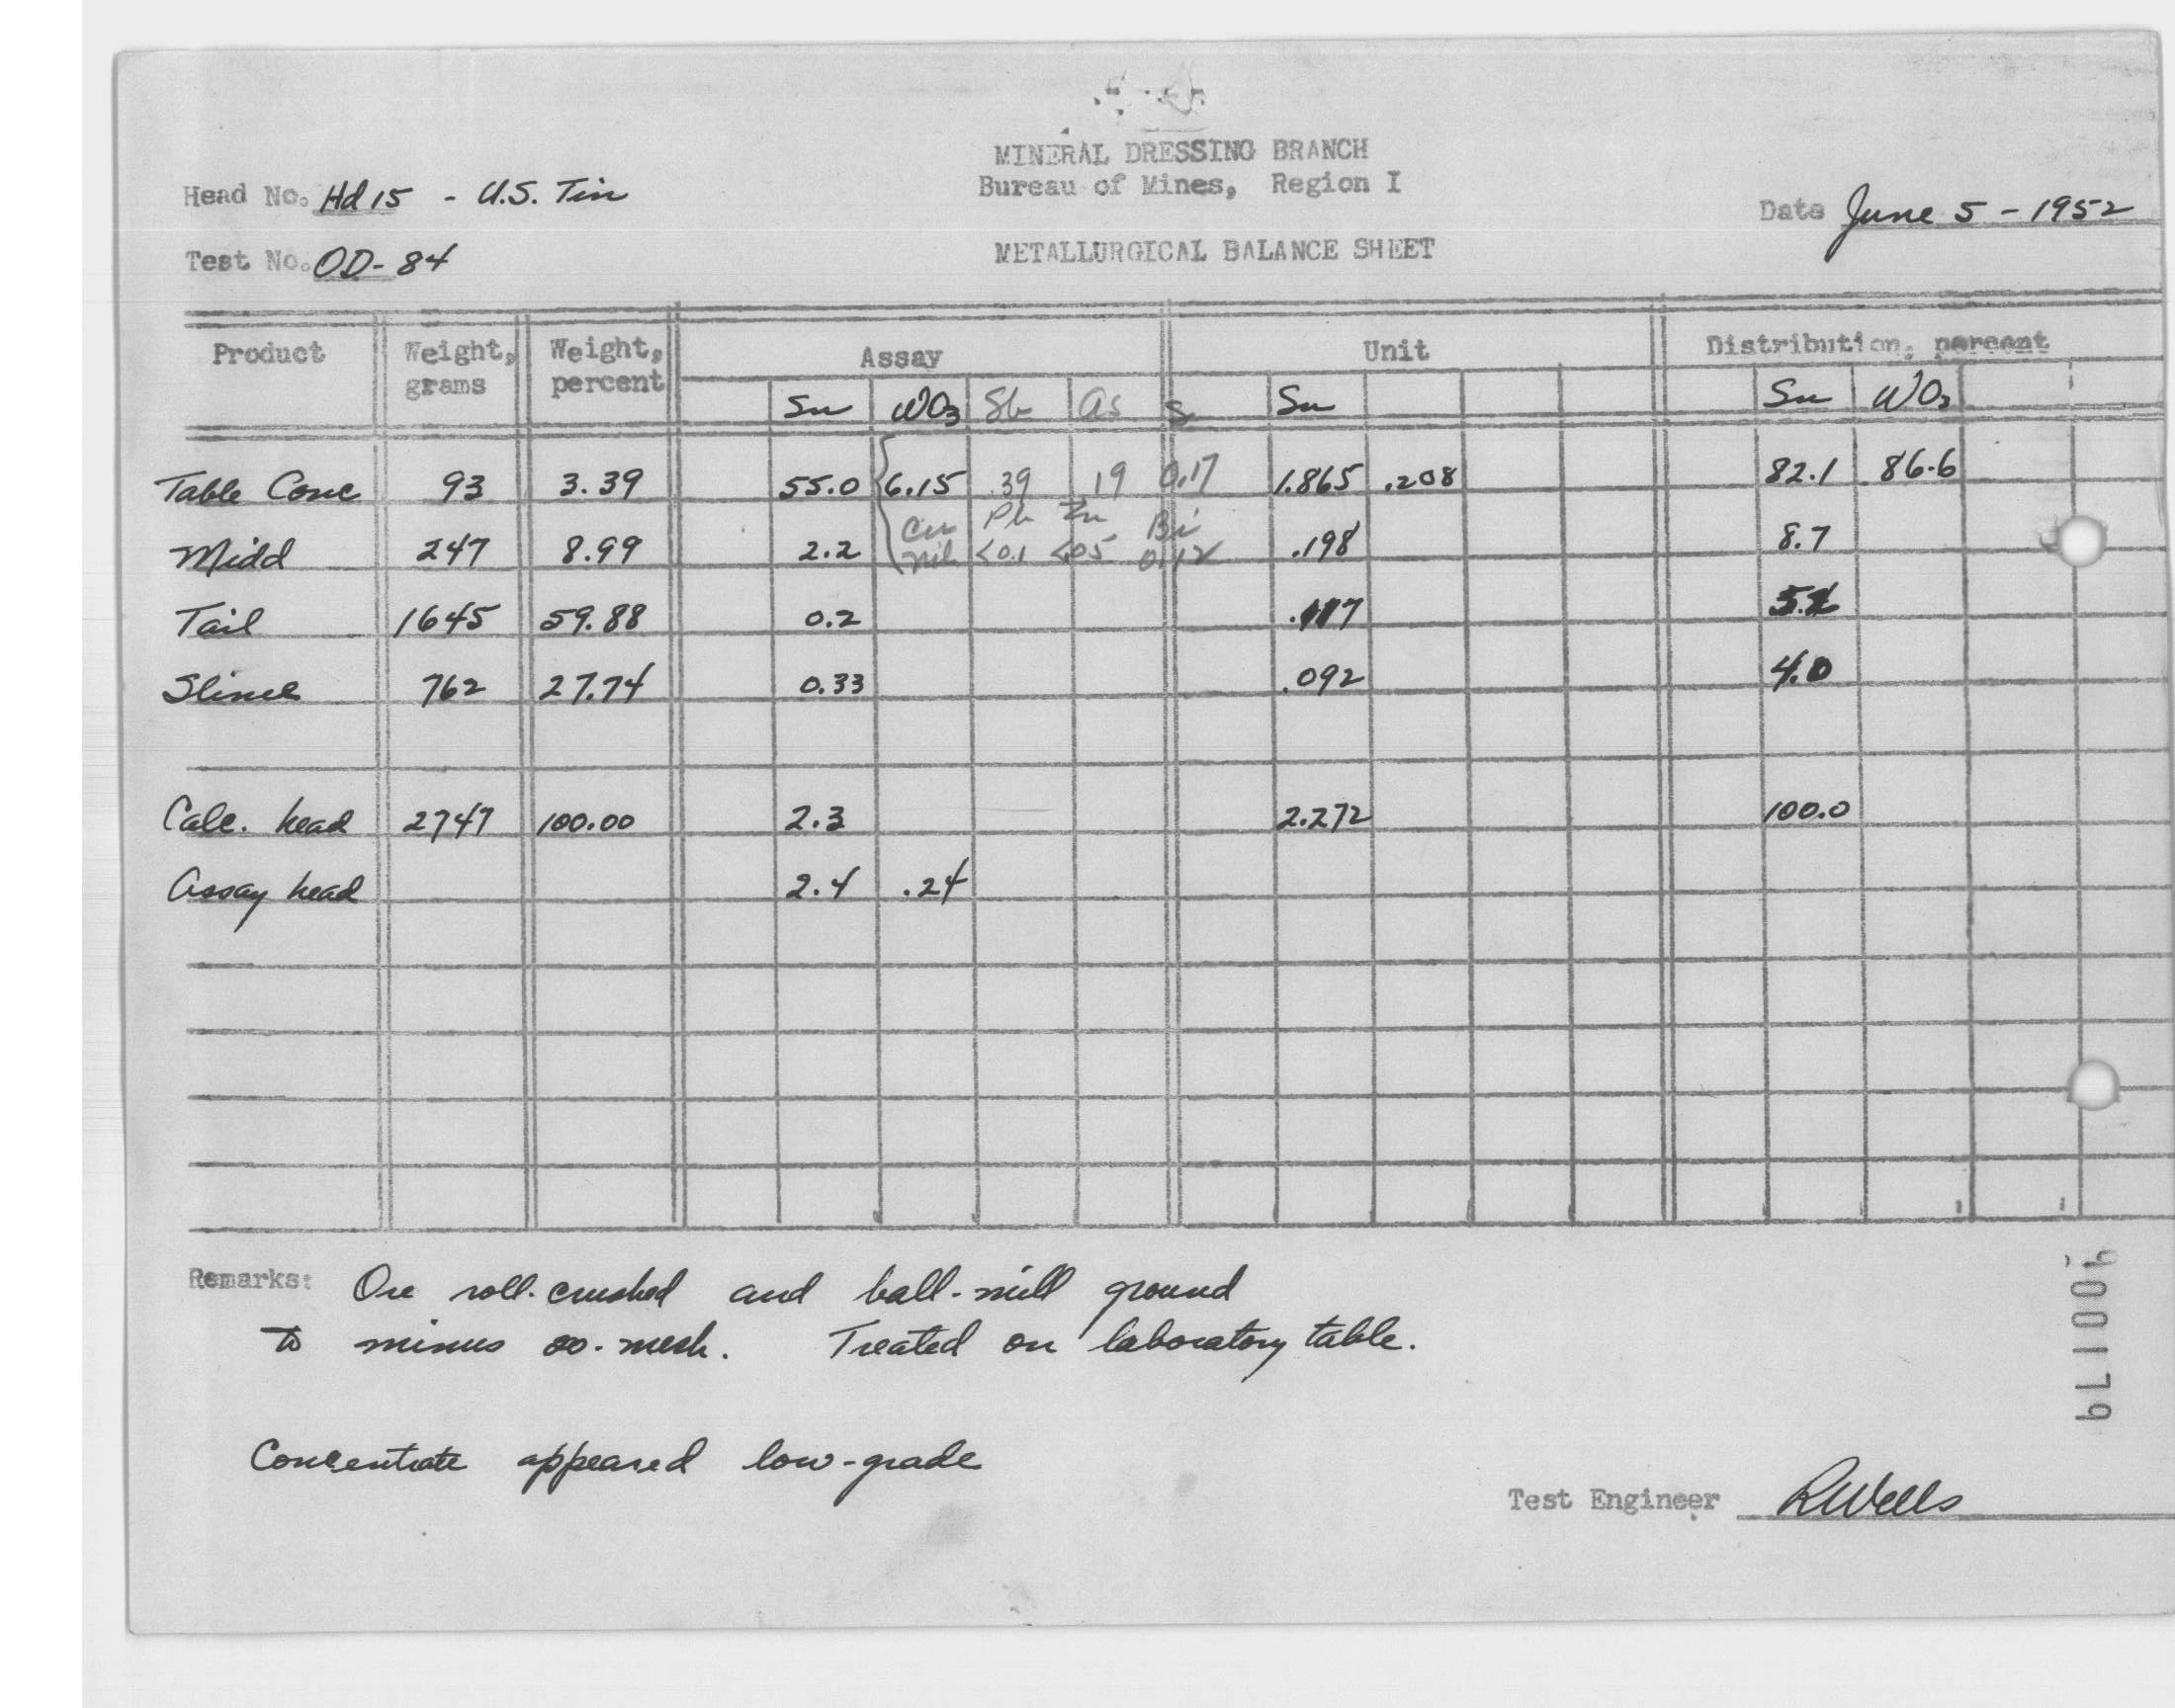 MINERAL DRESSING BRANCH
Head No. Hd 15 - U.S. Tin
Bureau of Mines, Region I
Date June 5 - 1952
Test No. OD-84
METALLURGICAL BALANCE SHEET
Product Weight, grams Weight, percent Assay Unit Distribution, percent
Sn WO3 Sb As S Sn Sn WO3
Table Conc 93 3.39 55.0 6.15 .39 .19 0.17 1.865 .208 82.1 86.6
Cu Pb Zn Bi
Midd 247 8.99 2.2 nil <0.1 <.05 0.12 .198 8.7
Tail 1645 59.88 0.2 .117
Slime 762 27.74 0.33 .092 4.0
Calc. head 2747 100.00 2.3 2.272 100.0
Assay head 2.4 .24
Remarks: Ore roll-crushed and ball-mill ground
to minus -mesh. Treated on laboratory table.
Concentrate appeared low-grade
Test Engineer RWells